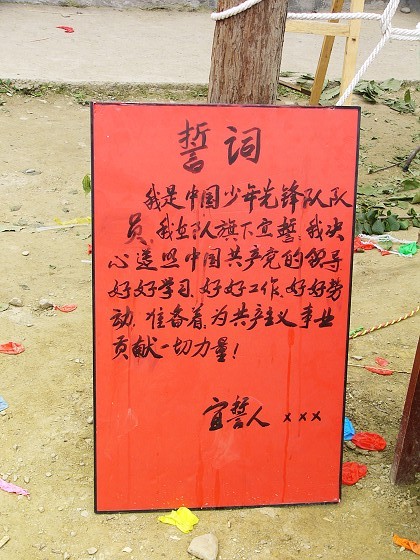 誓词
我是中国少年先锋队队
员,我在队旗下宣誓,我决
心遵照中国共产党的领导
好好学习、好好工作、好好劳
动,准备着,为共产主义事业
贡献一切力量!
宣誓人 xxx